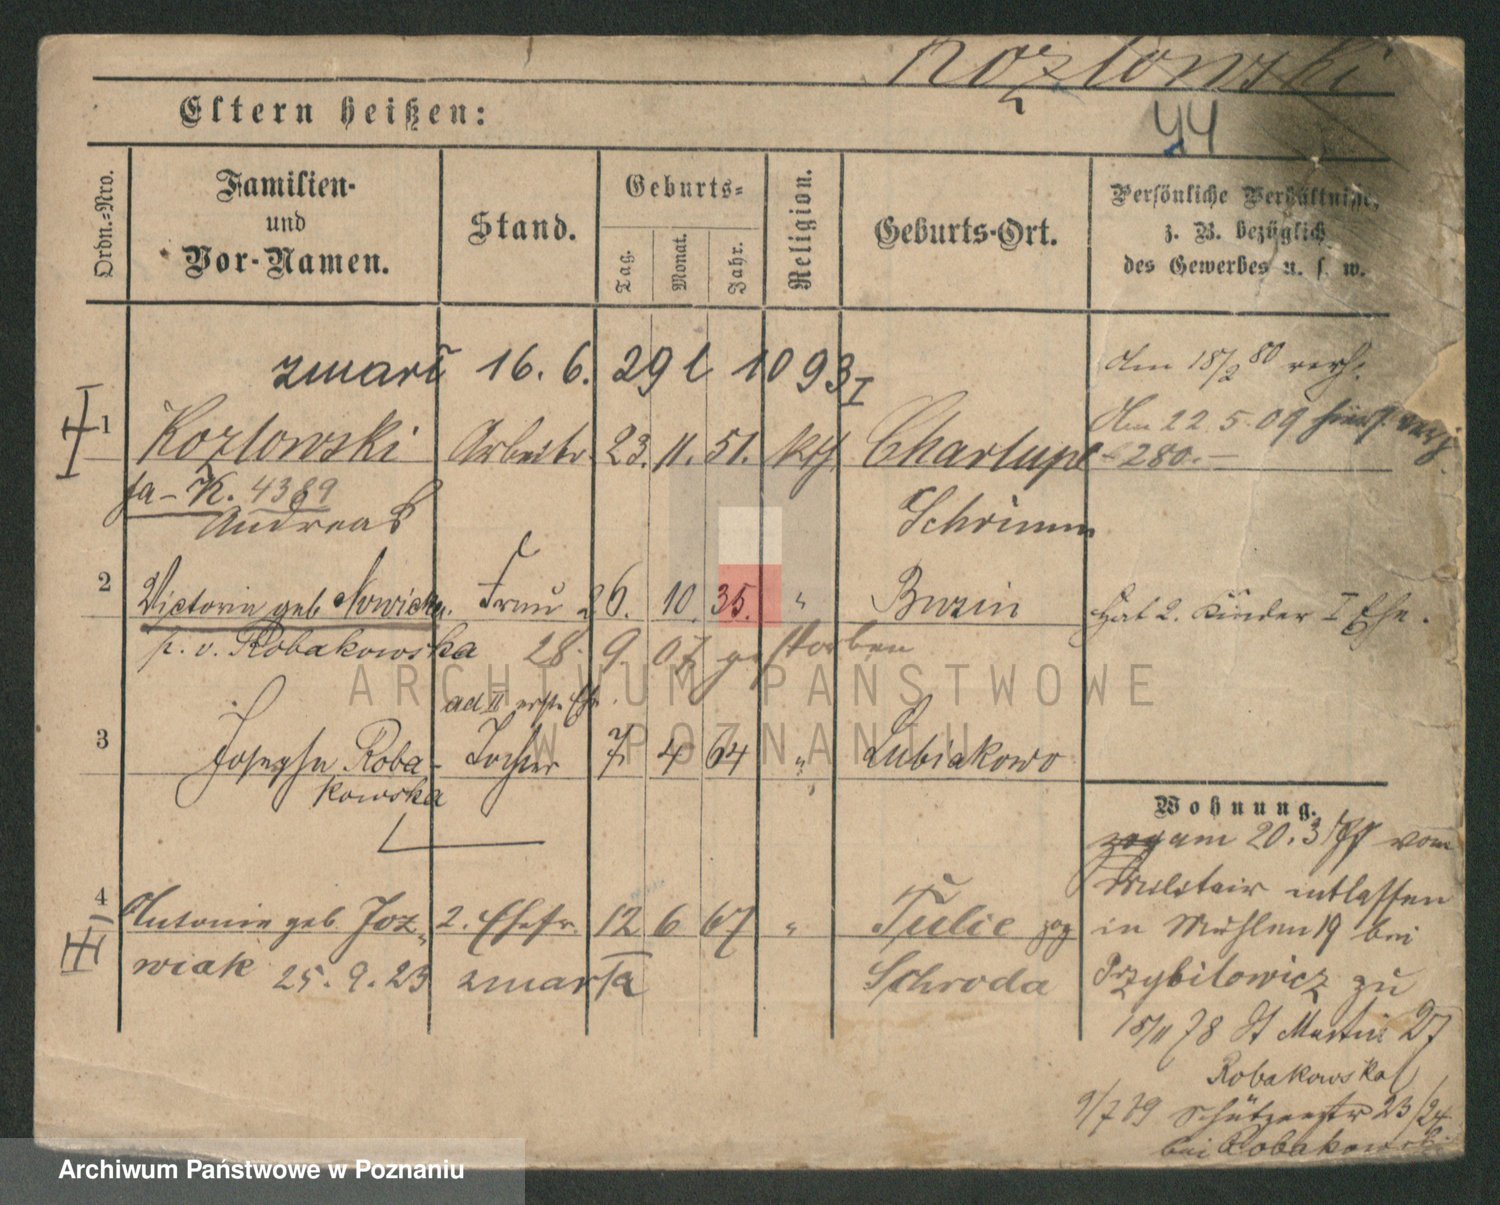 Kozłowski
Eltern heißen:
44
Ordn.-Nro.
Familien-
und
Vor-Namen.
Stand.
Geburts-
Tag.
Monat.
Jahr.
Religion.
Geburts-Ort.
Persönliche Verhältnisse,
z. B. bezüglich
des Gewerbes u. s. w.
zmarł 16. 6. 29 l 1093 I
Am 18/2 80 verh.
1 Kozlowski Arbeiter 23. 11. 51. kth. Chartupe
Am 22. 5. 09
280.-
fa - K. 4389
Andreas Schrimm
2 Victoria geb Nowicka. Frau 26. 10. 35. " Bnin Hat 2. Kinder I Ehe.
p. v. Robakowska 28. 9 07 gestorben
ad II erst. Ehe.
3 Josepha Roba- Tochter 7 4 64 " Lubiakowo
kowska
Wohnung.
am 20. 3 vom
Militair entlassen
4 Antonie geb. Joz- 2. Ehefr. 12 6 67 " Tulce
in Mühlen 19 bei
wiak 25. 9. 23 zmarła Schroda
Przybilowicz zu
15/11 78 St Martin 27
Robakowska
9/7 79 Schützenstr 23/24
bei Robakowski
ARCHIWUM PAŃSTWOWE
W POZNANIU
Archiwum Państwowe w Poznaniu